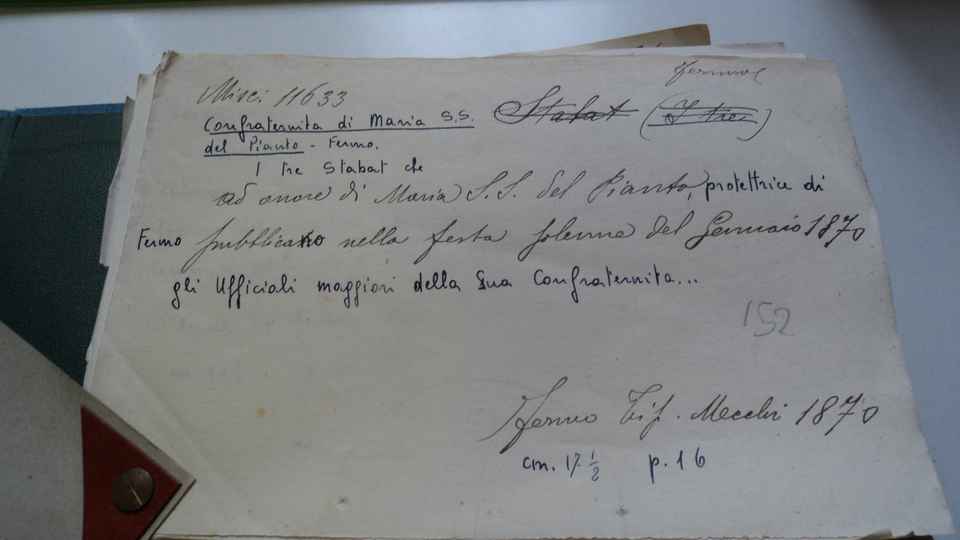 Misci. 11633
Confraternita di Maria S.S. Stabat (I tre)
del Pianto - Fermo.
I tre Stabat che
ad onore di Maria S.S. del Pianto, protettrice di
Fermo pubblicano nella festa solenne del Gennaio 1870
gli Ufficiali maggiori della Sua Confraternita...
152
Fermo Tip. Mecchi 1870
cm. 17 1/2 p. 16